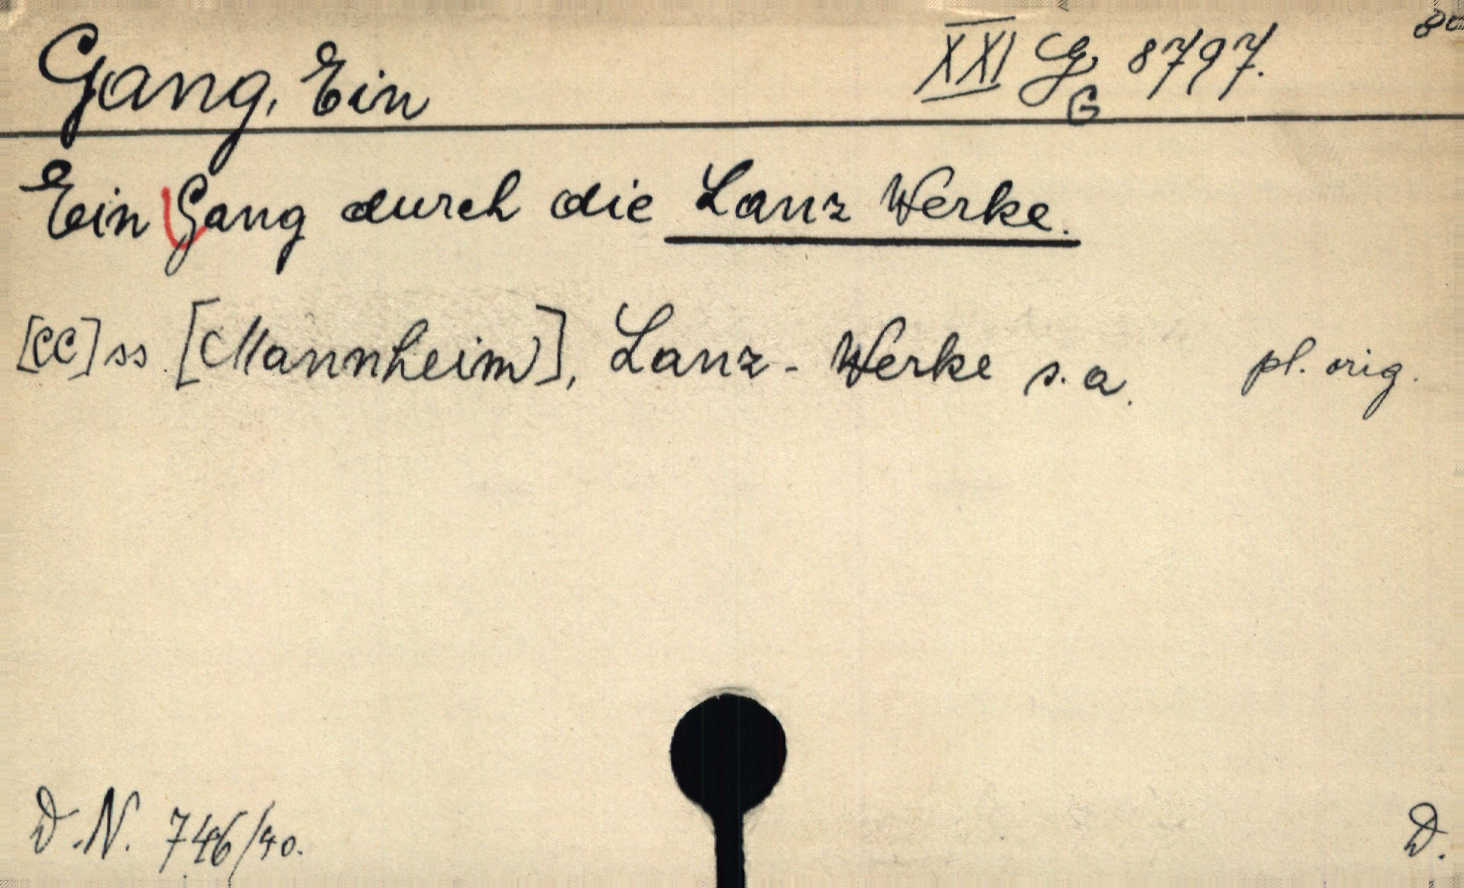 Gang, Ein XXI G 8797. 8o
G
Ein Gang durch die Lanz Werke.
[CC] ss. [Mannheim], Lanz-Werke s. a. pl. orig.
D.N. 746/40. D.